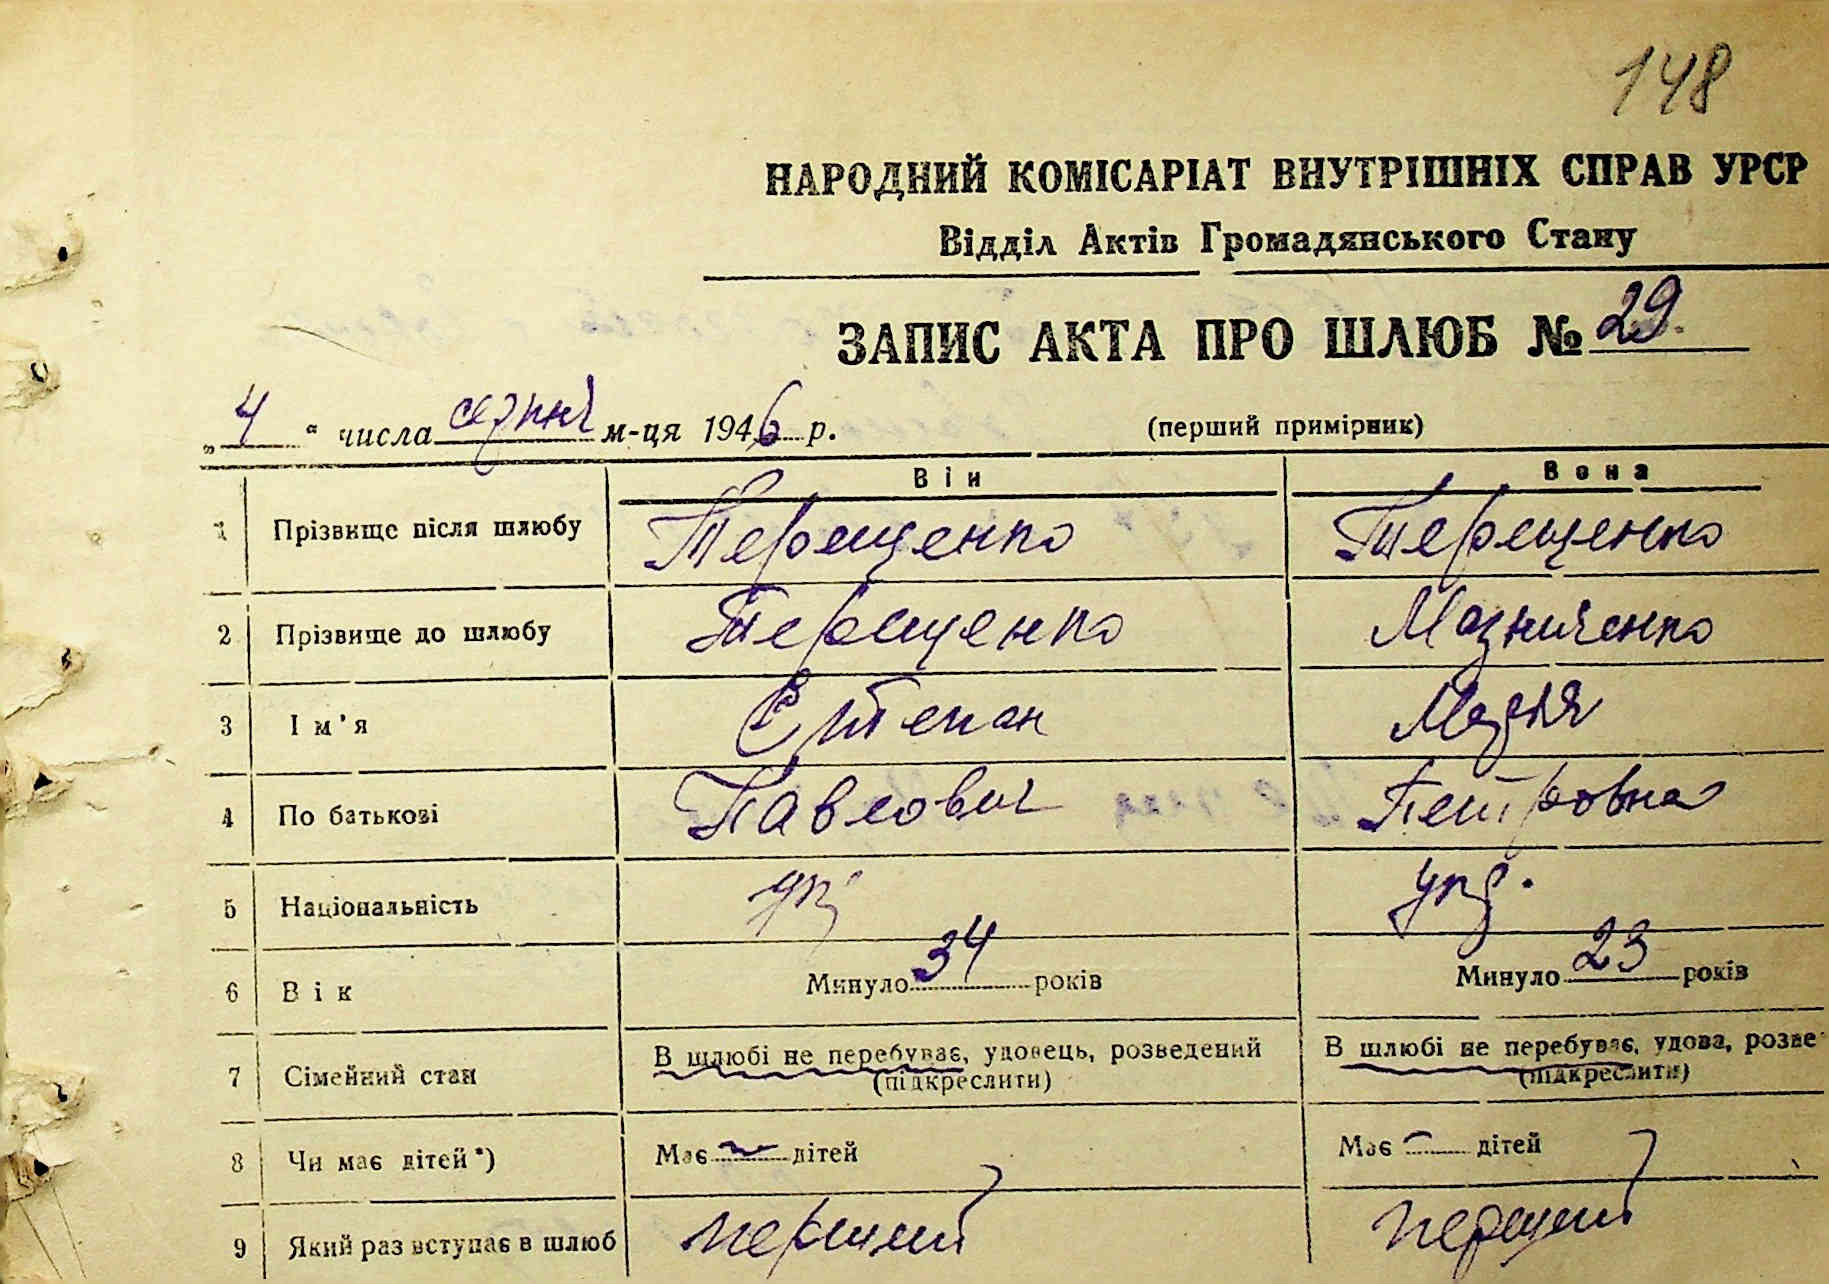 148
НАРОДНИЙ КОМІСАРІАТ ВНУТРІШНІХ СПРАВ УРСР
Відділ Актів Громадянського Стану
ЗАПИС АКТА ПРО ШЛЮБ № 29.
„4“ числа серпня м-ця 1946 р. (перший примірник)
Він Вона
1 Прізвище після шлюбу Терещенко Терещенко
2 Прізвище до шлюбу Терещенко Мазниченко
3 Ім'я Степан Марія
4 По батькові Павлович Петровна
5 Національність укр укр.
6 Вік Минуло 34 років Минуло 23 років
7 Сімейний стан В шлюбі не перебуває, удовець, розведений В шлюбі не перебуває, удова, розве
(підкреслити) (підкреслити)
8 Чи має дітей*) Має — дітей Має — дітей
9 Який раз вступає в шлюб перший перший